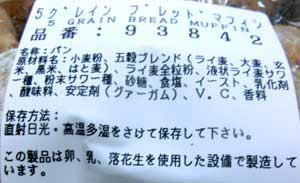 5グレイン ブレット・マフィン
5 GRAIN BREAD MUFFIN
品番：93842
名称：パン
原材料名：小麦粉、五穀ブレンド（ライ麦、大麦、玄
米、黒米、はと麦）、ライ麦全粒粉、液状ライ麦サワ
ー種、粉末サワー種、砂糖、食塩、イースト、乳化剤
、酸味料、安定剤（グァーガム）、V．C、香料
保存方法：
直射日光・高温多湿をさけて保存して下さい。
この製品は卵、乳、落花生を使用した設備で製造して
います。